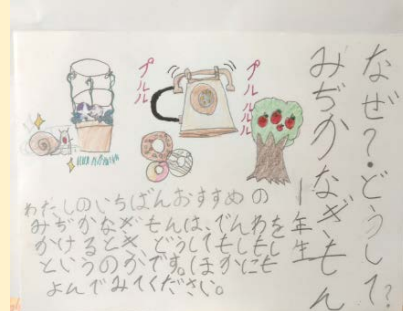 なぜ?・どうして?
みぢかなぎもん
一年生
プルルル
プルルルル
わたしのいちばんおすすめの
みぢかなぎもんは、でんわを
かけるとき どうしてもしもし
というのかです。ほかにも
よんでみてください。